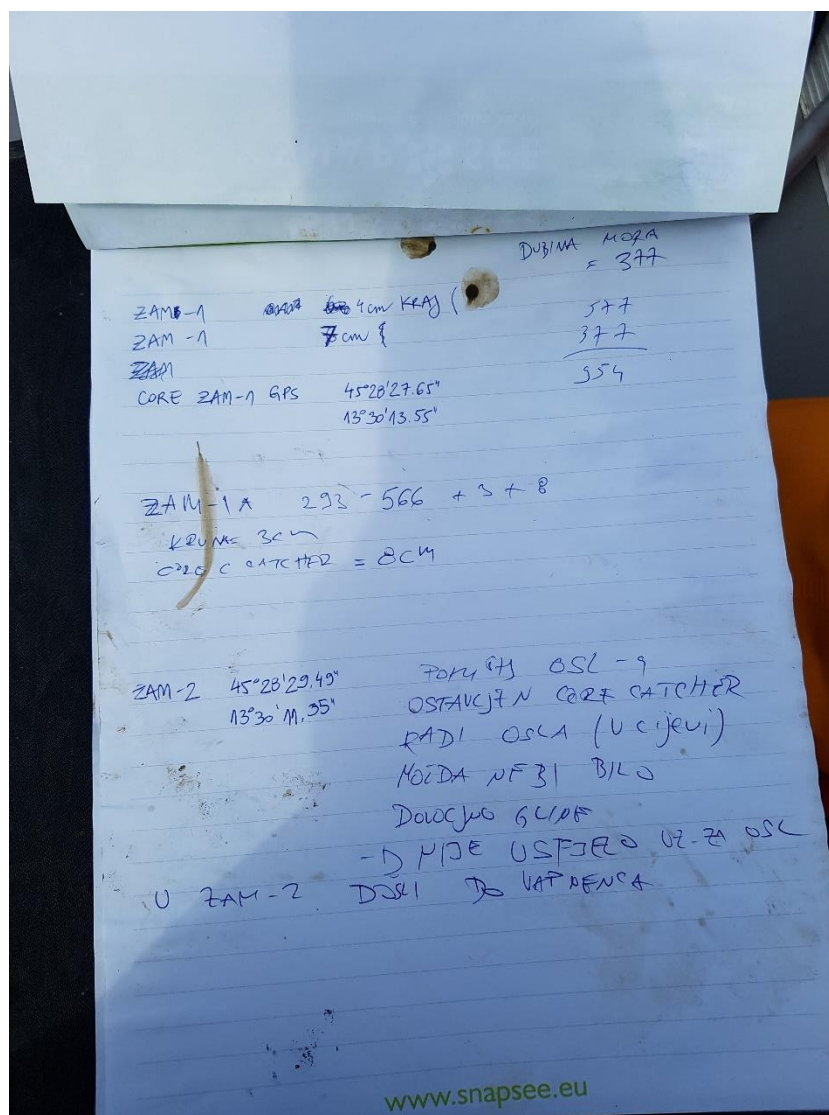 DUBINA MORA
= 377
ZAM-1 4cm KRAJ (
577
ZAM-1 7cm {
377
ZAM
954
CORE ZAM-1 GPS 45°28'27.65"
13°30'13.55"
ZAM-1A 293-566 + 3 + 8
KRUNA= 3cm
CORE CATCHER = 8CM
ZAM-2 45°28'29,49"
13°30'11,35"
OSL-a
OSTAVLJEN CORE CATCHER
RADI OSLA (U cijevi)
MOŽDA NEBI BILO
DOVOLJNO GLINE
NIJE USPJELO UZ-ZA OSL
U ZAM-2 DOŠLI DO VAPNENCA
www.snapsee.eu